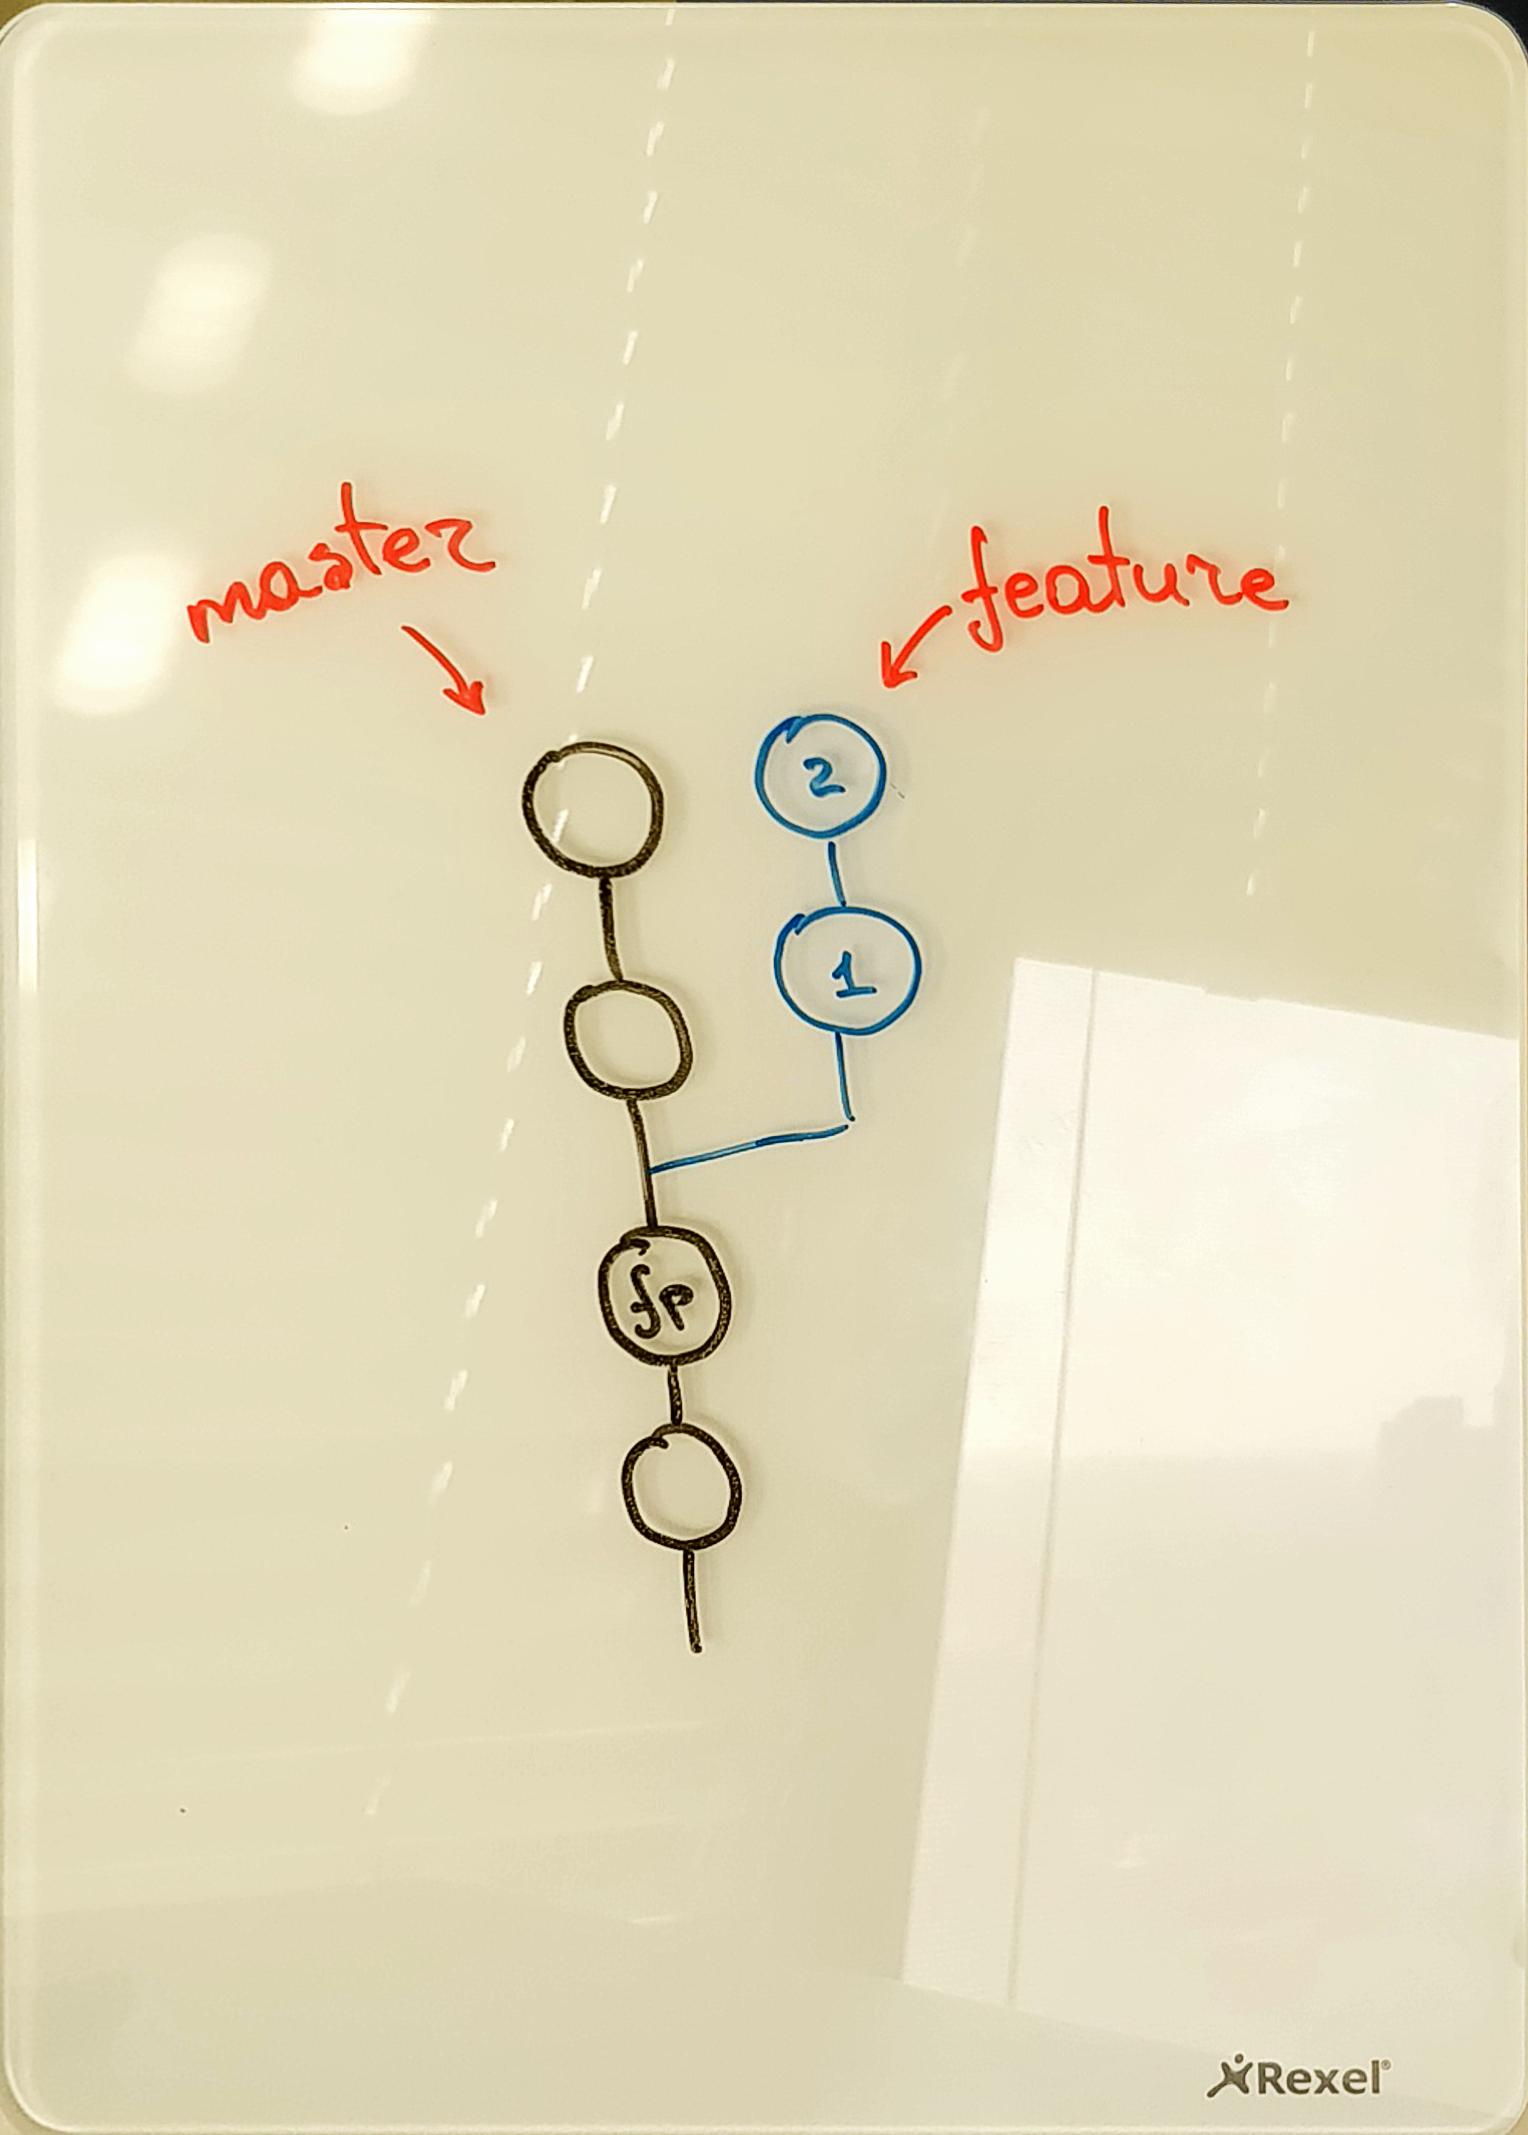 master
feature
2
1
fp
Rexel®